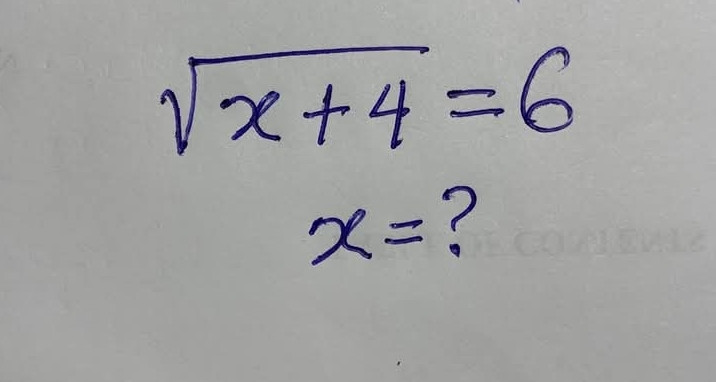 √x+4 = 6
x = ?